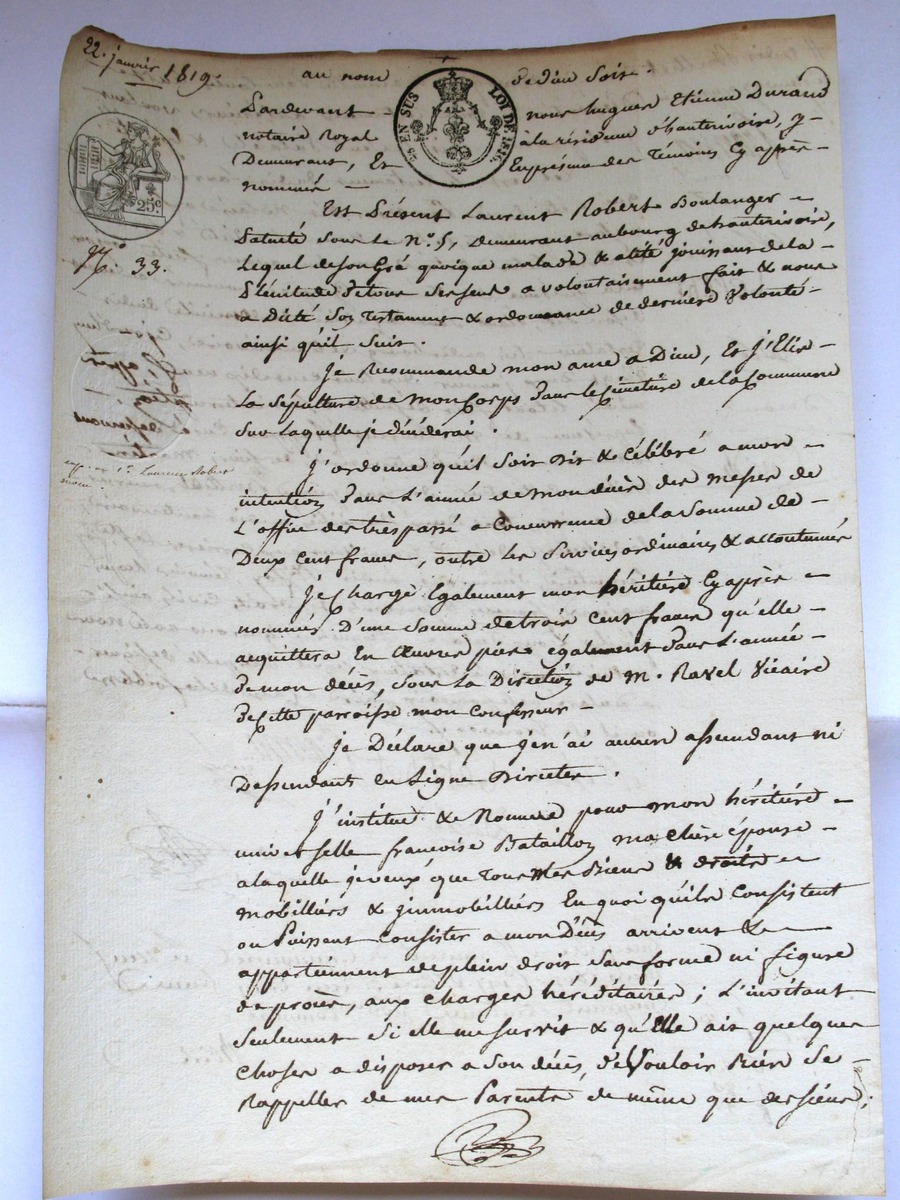 22. janvier 1819.
au nom de dieu soit.
EN SUS LOI DE 1816.
25c.
N.o 33.
Pardevant nous hugues Etienne Durand
notaire Royal à la résidence d'hauterivoire, y
Demeurant, Et En présence des Témoins Cy après
nommés —
Est Présent Laurent Robert Boulanger
Patenté sous le N.o 5, demeurant au bourg de hauterivoire,
Lequel de son Gré quoique malade & alité jouissant de la
Plénitude de tous ses sens a volontairement fait & nous
a Dicté Son Testament & ordonnance de dernière Volonté
ainsi qu'il Suit.
Je Recommande mon ame a Dieu, Et j'Elis
La Sépulture de mon Corps Dans le Cimetière de la Commune
Sur Laquelle je décéderai.
J'ordonne qu'il soit Dit & Célébré a mon
intention Dans L'année de mon décès des Messes de
L'office des trèspassé a Concurrence de la Somme de
Deux Cent francs, outre les Services ordinaires & accoutumés
Je Charge Egalement mon héritière Cy après
nommée D'une Somme de trois Cent francs qu'elle
acquittera En Œuvres pies également Dans L'année
de mon décès, sous La Direction de M. Ravel Vicaire
de Cette parroisse mon Confesseur —
Je Déclare que je n'ai aucun assendant ni
Dessendant en Ligne Directe.
J'institue & Nomme pour mon héritière
universelle françoise Bataillon ma chère épouse
a laquelle je veux que Tous Mes Biens & droits
mobilliers & jmmobilliers En quoi qu'ils Consistent
ou Puissent Consister a mon Décès arrivent &
appartiennent de plein droit sans forme ni figure
de procès, aux Charges héréditaires ; L'invitant
Seulement Si elle me survit & qu'Elle ait quelques
Choses a disposer a Son décès, de Vouloir Bien Se
Rappeller de mes Parents de même que des siens ;
Laurent Robert